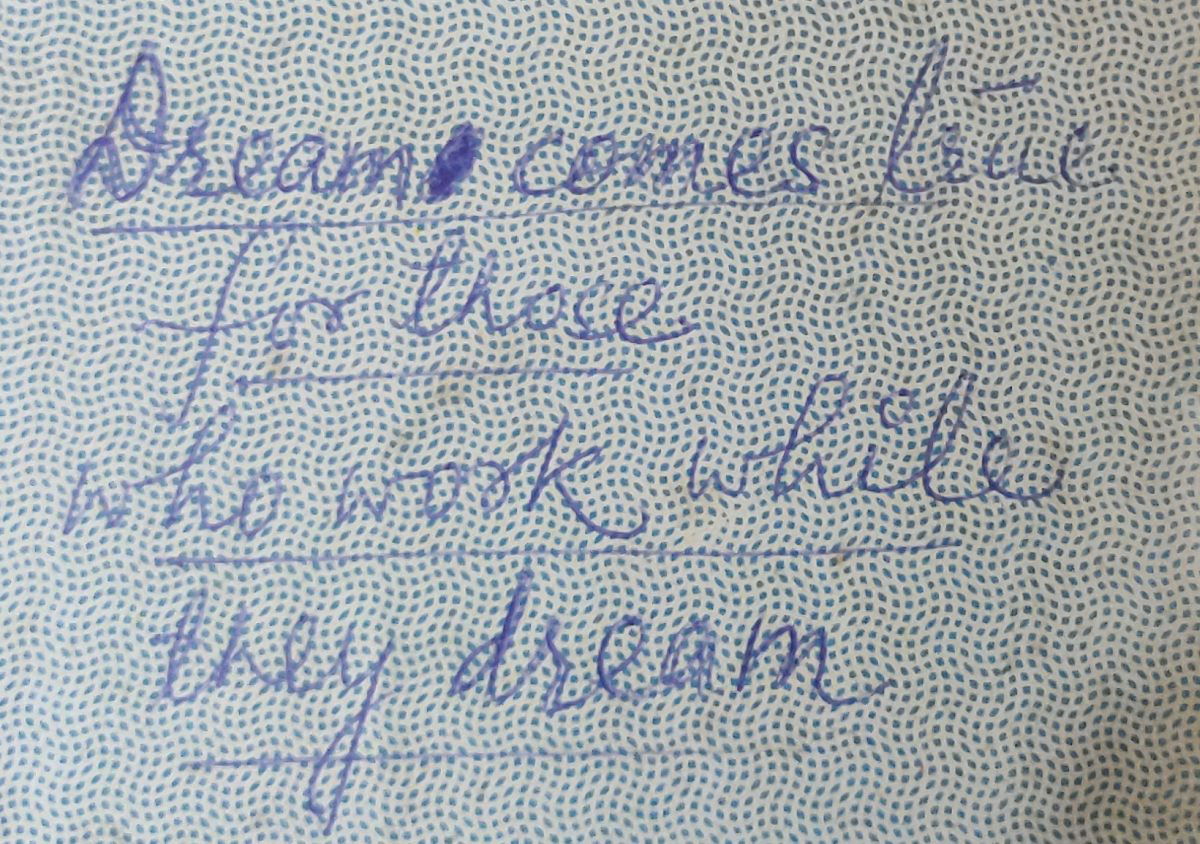 Dream comes true
for those
who work while
they dream